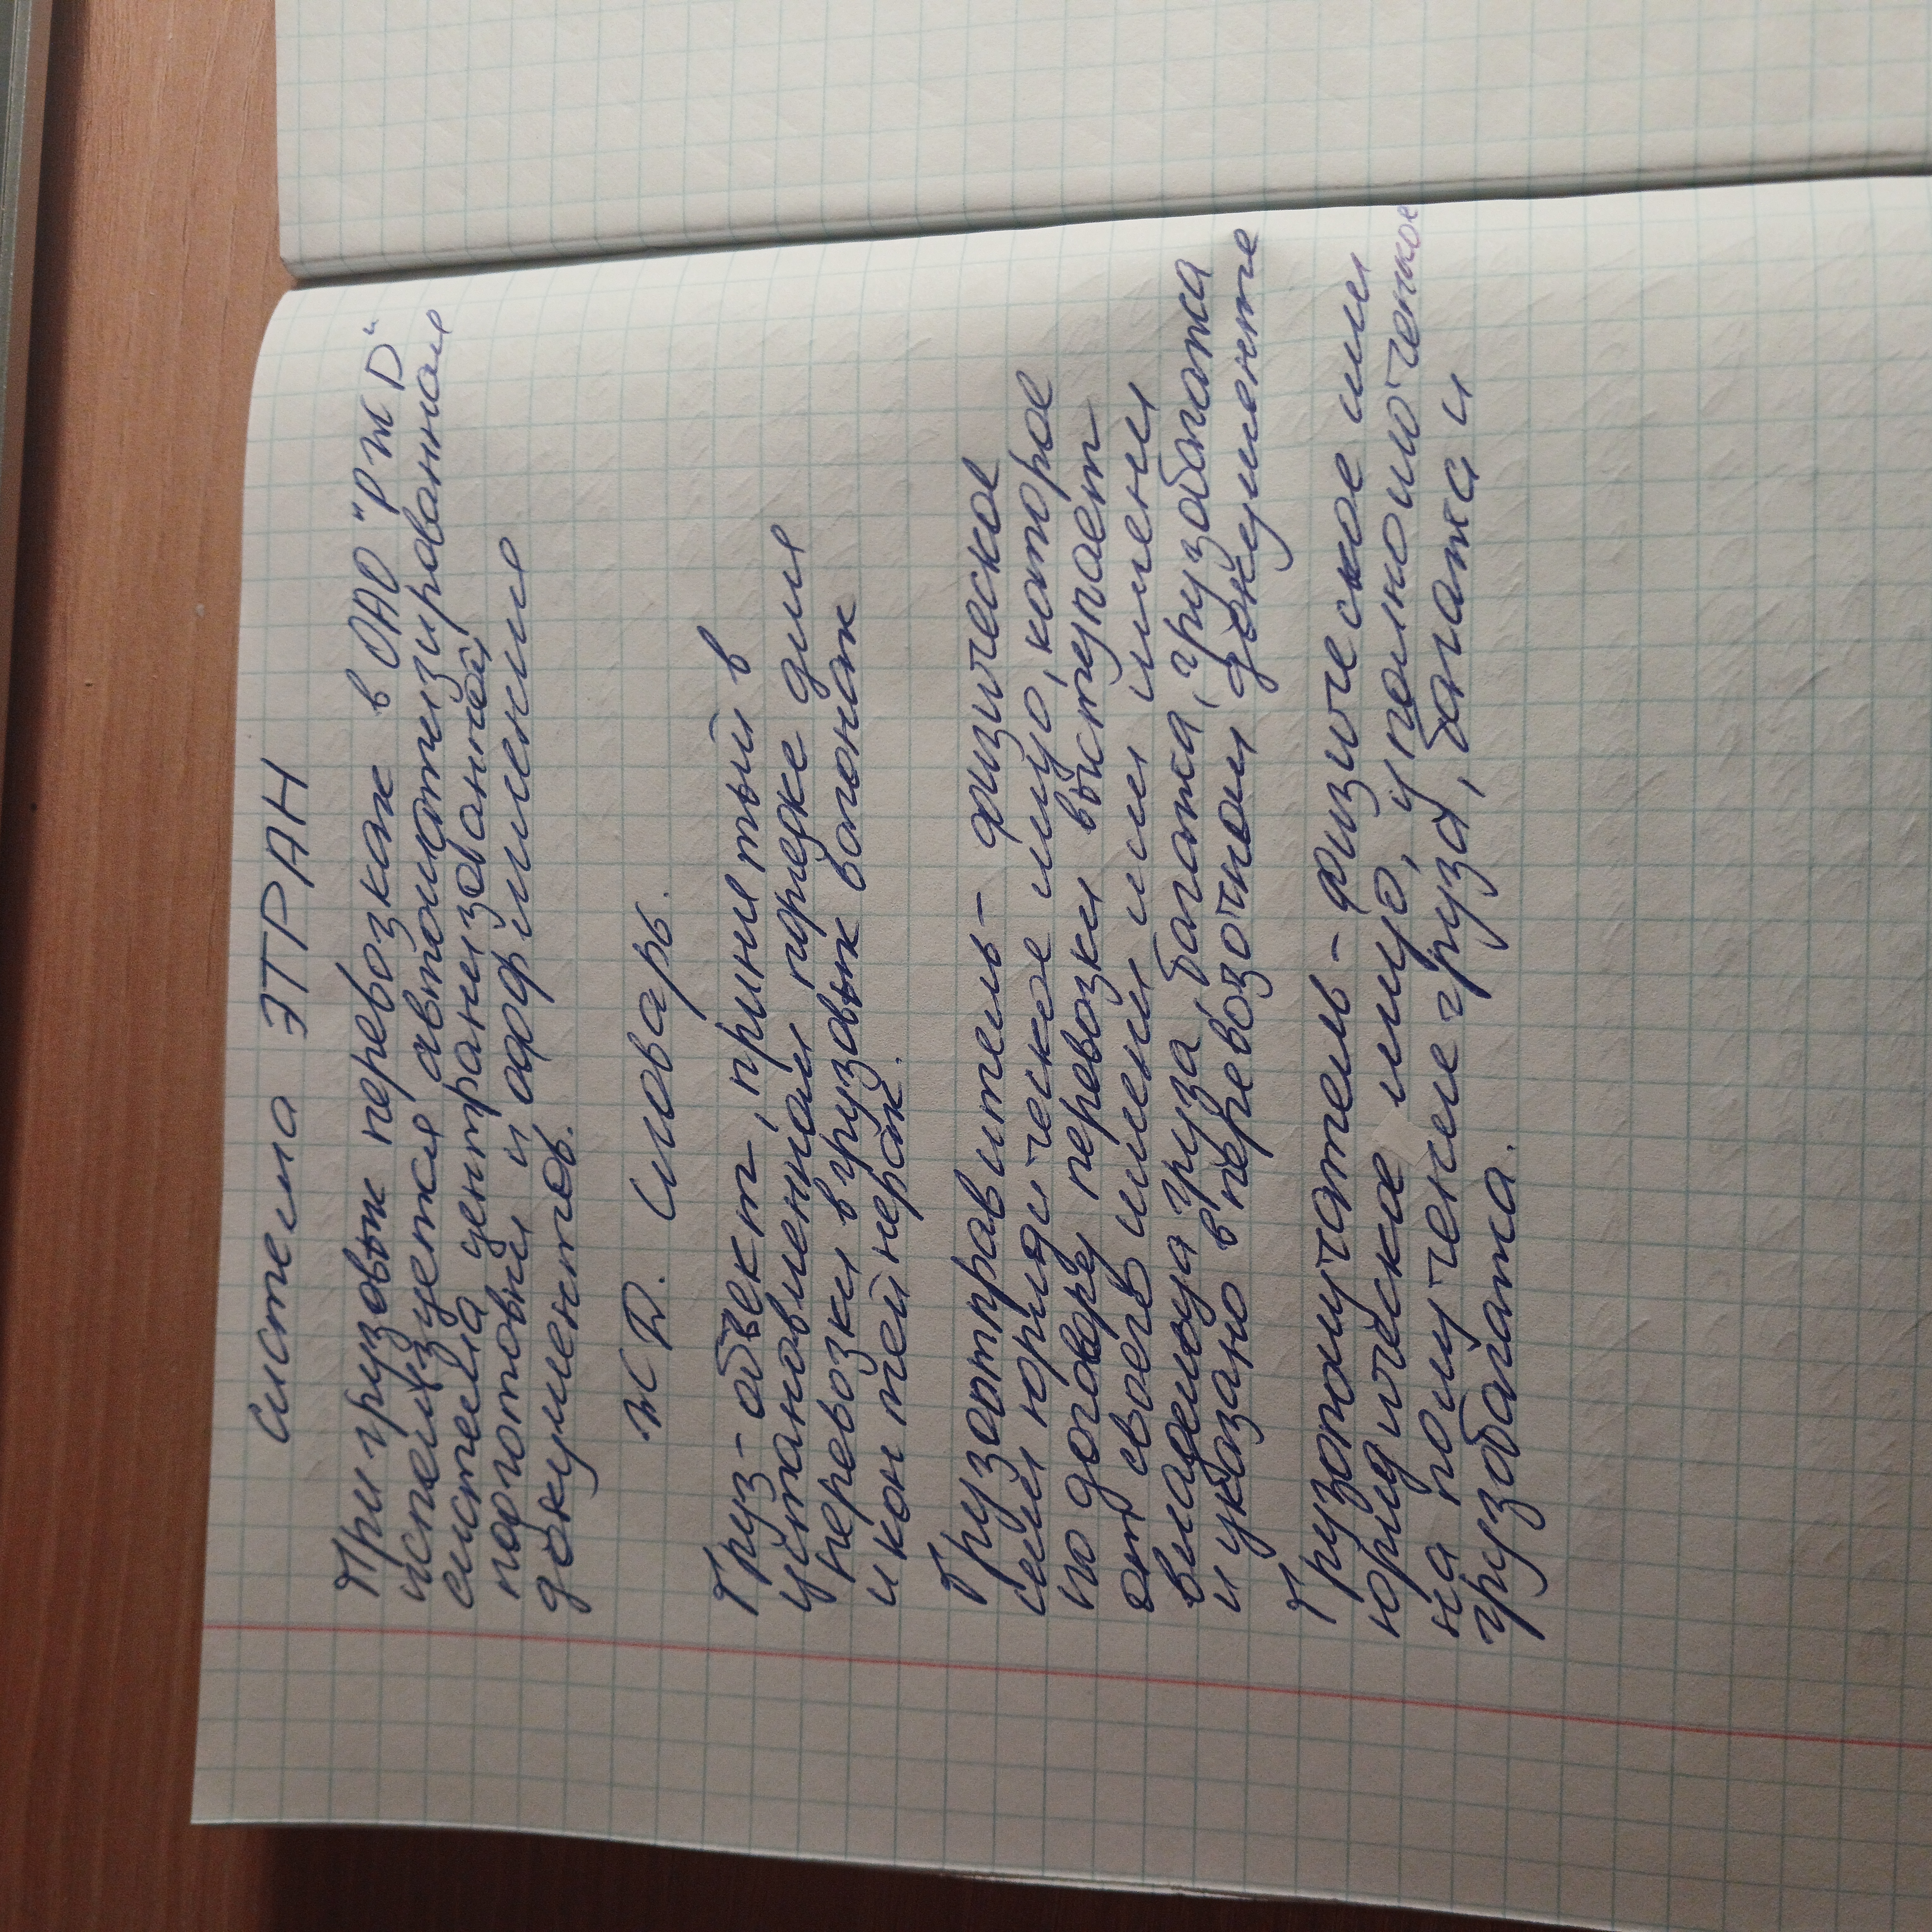 система ЭТРАН
При грузовых перевозках в ОАО "РЖD"
используется автоматизированная
система централизованной
подготовки и оформления
документов.
ЖД. словарь.
Груз-объект, принятый в
установленном порядке для
перевозки в грузовых вагонах
и контейнерах.
Грузоотправитель- физическое
или юридическое лицо, которое
по договору перевозки выступает
от своего имени или имени
владельца груза, багажа, грузобагажа
и указано в перевозочном документе
Грузополучатель-физическое или
юридическое лицо, уполномоченное
на получение груза, багажа и
грузобагажа.